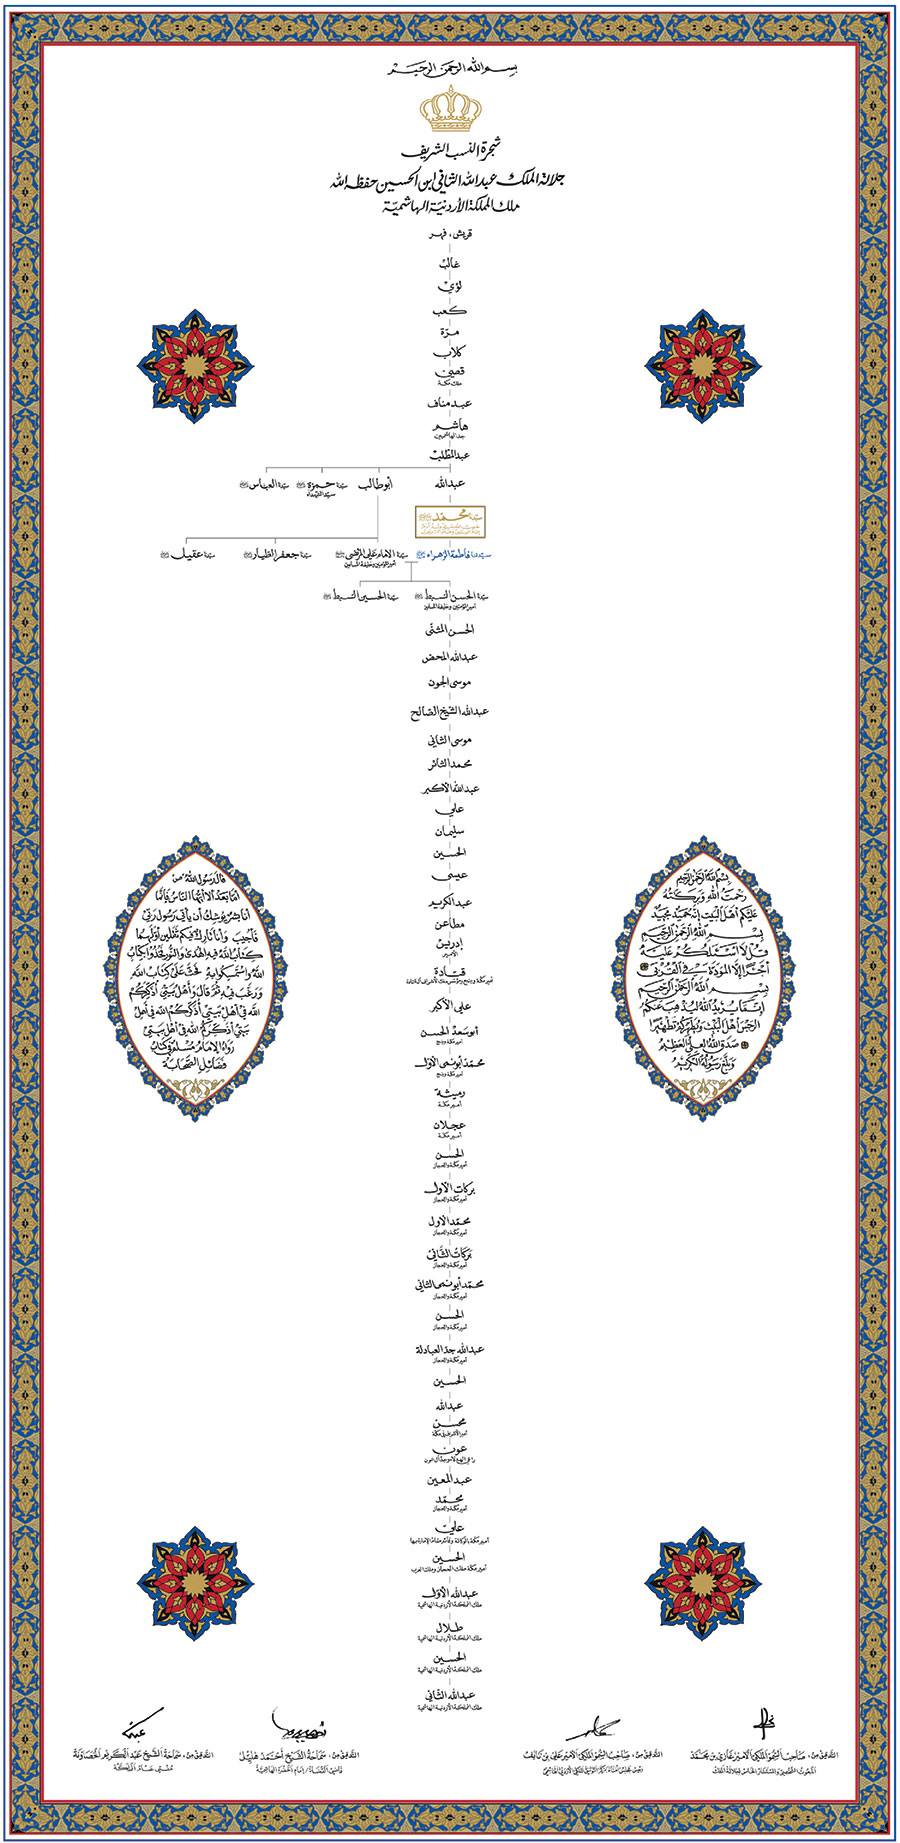 بسم الله الرحمن الرحيم
شجرة النسب الشريف
جلالة الملك عبدالله الثاني ابن الحسين حفظه الله
ملك المملكة الأردنية الهاشمية
قريش، فهر
غالب
لؤي
كعب
مرة
كلاب
قصي
ملك مكة
عبد مناف
هاشم
جد الهاشميين
عبدالمطلب
عبدالله
أبو طالب
سيدنا حمزة
سيد الشهداء
سيدنا العباس
سيدنا محمد
سيدتنا فاطمة الزهراء
سيدنا الامام علي المرتضى
أمير المؤمنين وخليفة المسلمين
سيدنا جعفر الطيار
سيدنا عقيل
سيدنا الحسن السبط
أمير المؤمنين وخليفة المسلمين
سيدنا الحسين السبط
الحسن المثنى
عبدالله المحض
موسى الجون
عبدالله الشيخ الصالح
موسى الثاني
محمد الثائر
عبدالله الأكبر
علي
سليمان
الحسين
عيسى
عبد الكريم
مطاعن
إدريس
الأمير
قتادة
علي الأكبر
أبو سعد الحسن
أمير مكة وينبع
محمد أبو نمي الأول
أمير مكة وينبع
رميثة
أمير مكة
عجلان
أمير مكة
الحسن
أمير مكة والحجاز
بركات الأول
أمير مكة والحجاز
محمد الأول
أمير مكة والحجاز
بركات الثاني
أمير مكة والحجاز
محمد أبو نمي الثاني
أمير مكة والحجاز
الحسن
أمير مكة والحجاز
عبدالله جد العبادلة
أمير مكة والحجاز
الحسين
عبدالله
محسن
عون
عبد المعين
محمد
أمير مكة والحجاز
علي
الحسين
أمير مكة ملك الحجاز وملك العرب
عبدالله الأول
ملك المملكة الأردنية الهاشمية
طلال
ملك المملكة الأردنية الهاشمية
الحسين
ملك المملكة الأردنية الهاشمية
عبدالله الثاني
ملك المملكة الأردنية الهاشمية
بسم الله الرحمن الرحيم
رحمت الله وبركته
عليكم أهل البيت إنه حميد مجيد
بسم الله الرحمن الرحيم
قل لا أسئلكم عليه
أجرا إلا المودة في القربى
بسم الله الرحمن الرحيم
إنما يريد الله ليذهب عنكم
الرجس أهل البيت ويطهركم تطهيرا
صدق الله العلي العظيم
وبلغ رسوله الكريم
قال رسول الله
أما بعد ألا أيها الناس فإنما
أنا بشر يوشك أن يأتي رسول ربي
فأجيب وأنا تارك فيكم ثقلين أولهما
كتاب الله فيه الهدى والنور فخذوا بكتاب
الله واستمسكوا به فحث على كتاب الله
ورغب فيه ثم قال وأهل بيتي أذكركم
الله في أهل بيتي أذكركم الله في أهل
بيتي أذكركم الله في أهل بيتي
رواه الإمام مسلم في كتاب
فضائل الصحابة
التدقيق من: صاحب السمو الملكي الأمير غازي بن محمد
التدقيق من: صاحب السمو الملكي الأمير علي بن نايف
التدقيق من: سماحة الشيخ أحمد هليل
التدقيق من: سماحة الشيخ عبد الكريم الخصاونة
مفتي عام المملكة